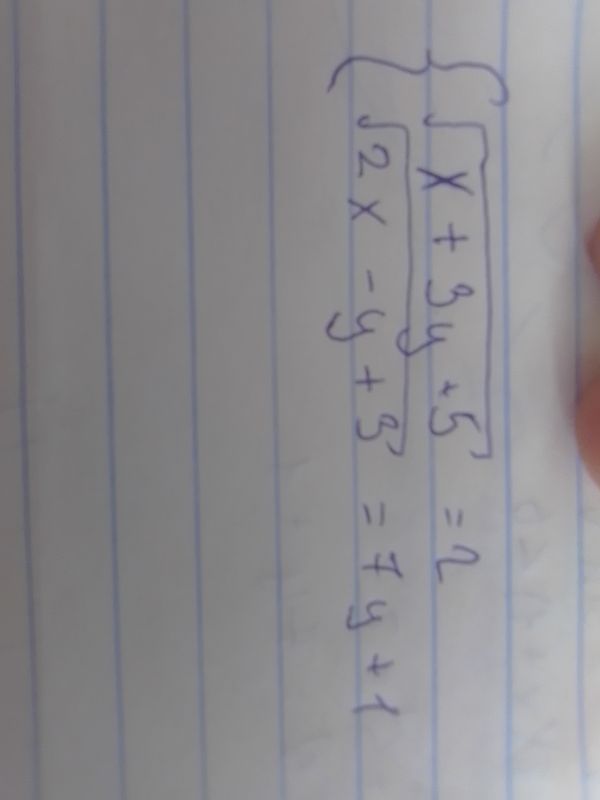 √x + 3y + 5 = 2
√2x - y + 3 = 7y + 1